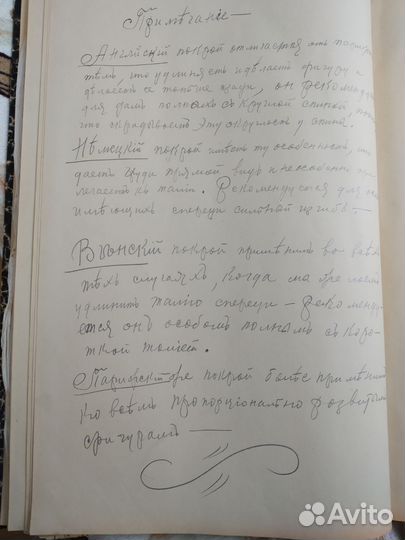 Примѣчаніе —
Англійскій покрой отличается отъ
тѣмъ, что удлиняетъ и дѣлаетъ фигуру
дѣлается тоньше сзади, онъ рекоменду
для дамъ полныхъ съ круглой спиной,
что скрадываетъ эту округлость у спины.
Нѣмецкій покрой имѣетъ ту особенность, что
даетъ груди прямой видъ и не особенно при
легаетъ къ таліи. Рекомендуется для не
имѣющихъ спереди сильный изгибъ —
Вѣнскій покрой примѣнимъ во всѣхъ
тѣхъ случаяхъ, когда желаютъ
удлинить талію спереди — рекоменду
ется онъ особомъ полнымъ съ коро
ткой таліей.
Парижскій же покрой болѣе примѣнимъ
ко всѣмъ пропорціонально развитымъ
фигурамъ —
Avito